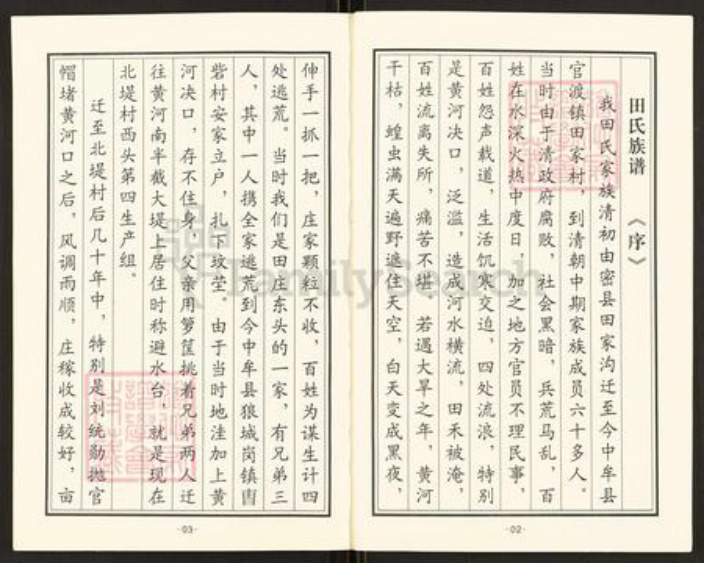 田氏族谱 《序》
我田氏家族清初由密县田家沟迁至今中牟县
官渡镇田家村，到清朝中期家族成员六十多人。
当时由于清政府腐败，社会黑暗，兵荒马乱，百
姓在水深火热中度日，加之地方官员不理民事，
百姓怨声载道，生活饥寒交迫，四处流浪，特别
是黄河决口，泛滥，造成河水横流，田禾被淹，
百姓流离失所，痛苦不堪。若遇大旱之年，黄河
干枯，蝗虫满天遍野遮住天空，白天变成黑夜，
-02-
伸手一抓一把，庄家颗粒不收，百姓为谋生计四
处逃荒。当时我们是田庄东头的一家，有兄弟三
人，其中一人携全家逃荒到今中牟县狼城岗镇
砦村安家立户，扎下坟茔。由于当时地洼加上黄
河决口，存不住身，父亲用箩筐挑着兄弟两人迁
往黄河南半截大堤上居住时称避水台，就是现在
北堤村西头第四生产组。
迁至北堤村后几十年中，特别是刘统勋抛官
帽堵黄河口之后，风调雨顺，庄稼收成较好，亩
-03-
FamilySearch